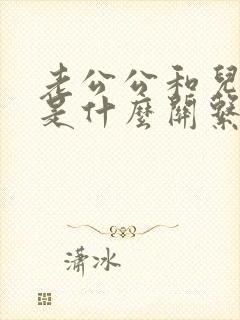 老公公和兒
是什麼關繫
瀟冰